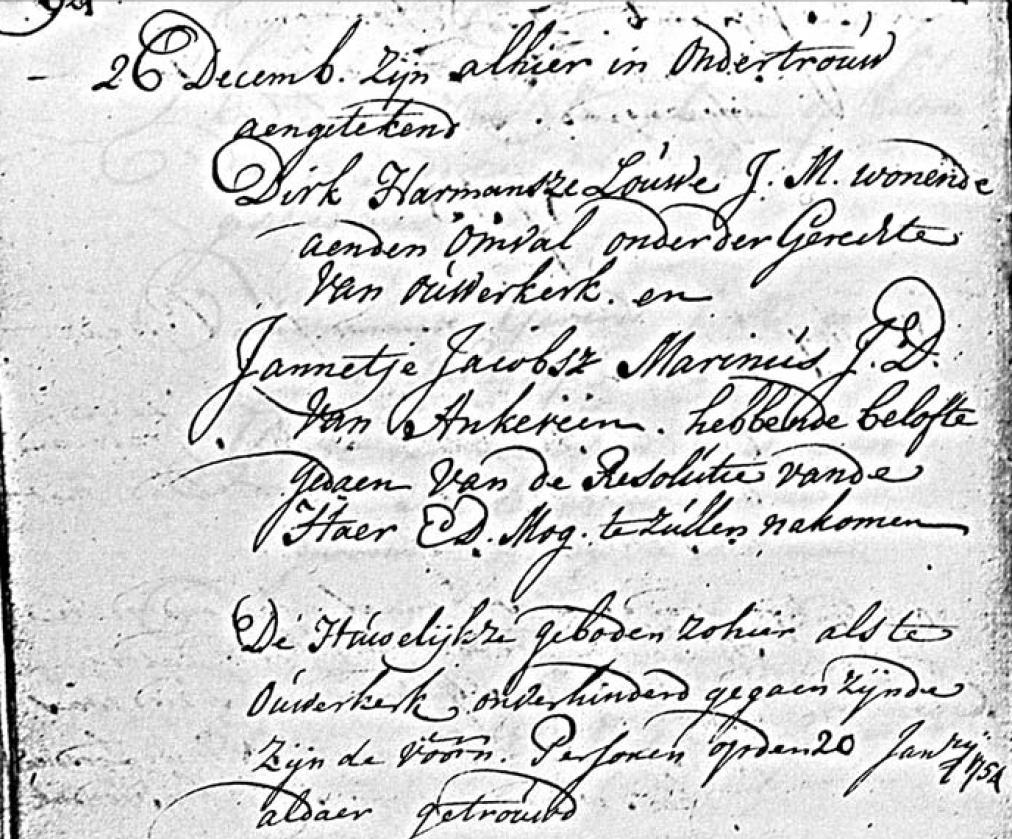 26 Decemb. Zijn alhier in Ondertrouw
aengetekend
Dirk Harmansze Louwe J. M. wonende
aenden Omval onder der Gerechte
Van Ouwerkerk. en
Jannetje Jacobsz Marinus J. D.
Van Ankeveen. hebbende belofte
gedaen Van de Resolutie vande
Haer ED. Mog. te zullen nakomen
De Huwelijkze geboden zo hier als te
Ouwerkerk onverhinderd gegaen zijnde
Zijn de Voorn. Persoonen op den 20 Janry 1754
aldaer getrouwd